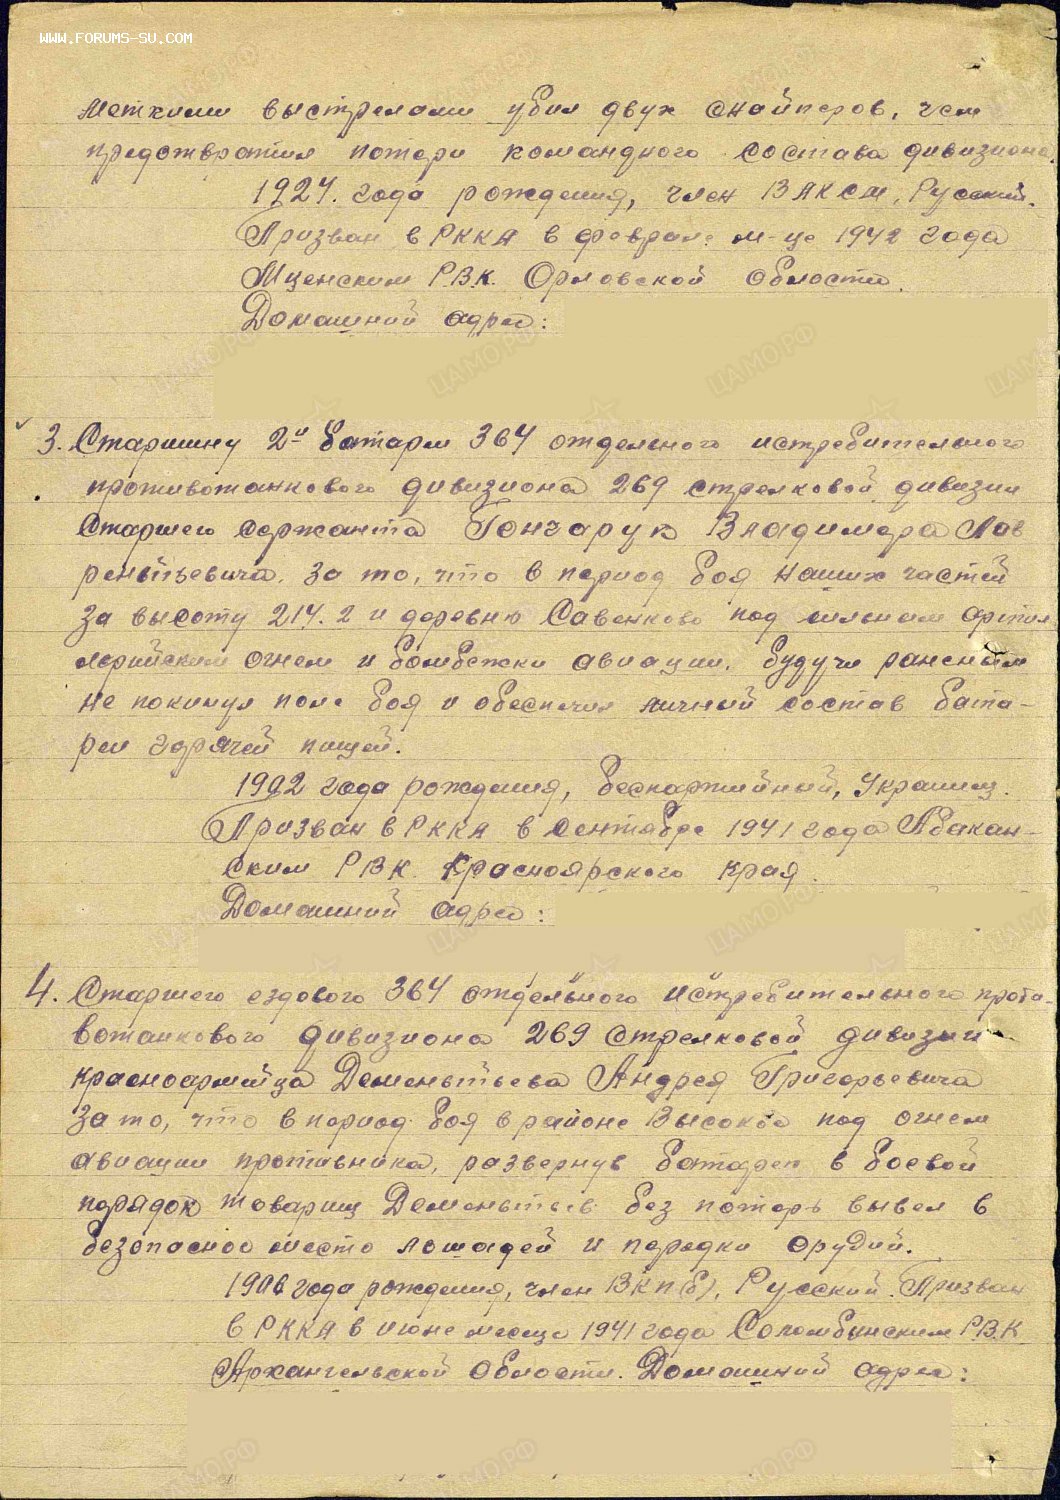 WWW.FORUMS-SU.COM
меткими выстрелами убил двух снайперов, чем
предотвратил потери командного состава дивизиона.
1924. года рождения, член ВЛКСМ, Русский.
Призван в РККА в феврале м-це 1942 года
Мценским Р.В.К. Орловской области.
Домашний адрес:
3. Старшину 2й батареи 364 отдельного истребительного
противотанкового дивизиона 269 стрелковой дивизии
Старшего сержанта Гончарук Владимера Лав
рентьевича, за то, что в период боя наших частей
за высоту 214.2 и деревню Савенково под сильным артил
лерийским огнем и бомбежки авиации, будучи раненым
не покинул поле боя и обеспечил личный состав бата-
реи горячей пищей.
1902 года рождения, беспартийный, Украинец.
Призван в РККА в Сентябре 1941 года Абакан-
ским РВК. Красноярского края.
Домашний адрес:
4. Старшего ездового 364 отдельного истребительного проти-
вотанкового дивизиона 269 стрелковой дивизии
красноармейца Дементьева Андрея Григорьевича
за то, что в период боя в районе Высокое под огнем
авиации противника, развернув батарею в боевой
порядок товарищ Дементьев без потерь вывел в
безопасное место лошадей и передки орудий.
1906 года рождения, член ВКП(б), Русский. Призван
в РККА в июне месяце 1941 года Соломбальским Р.В.К.
Архангельской области. Домашний адрес:
ЦАМО.РФ